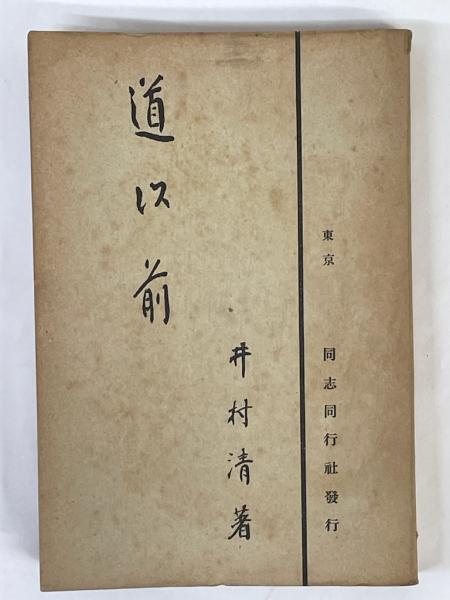 東京 同志同行社發行
道以前
井村清著